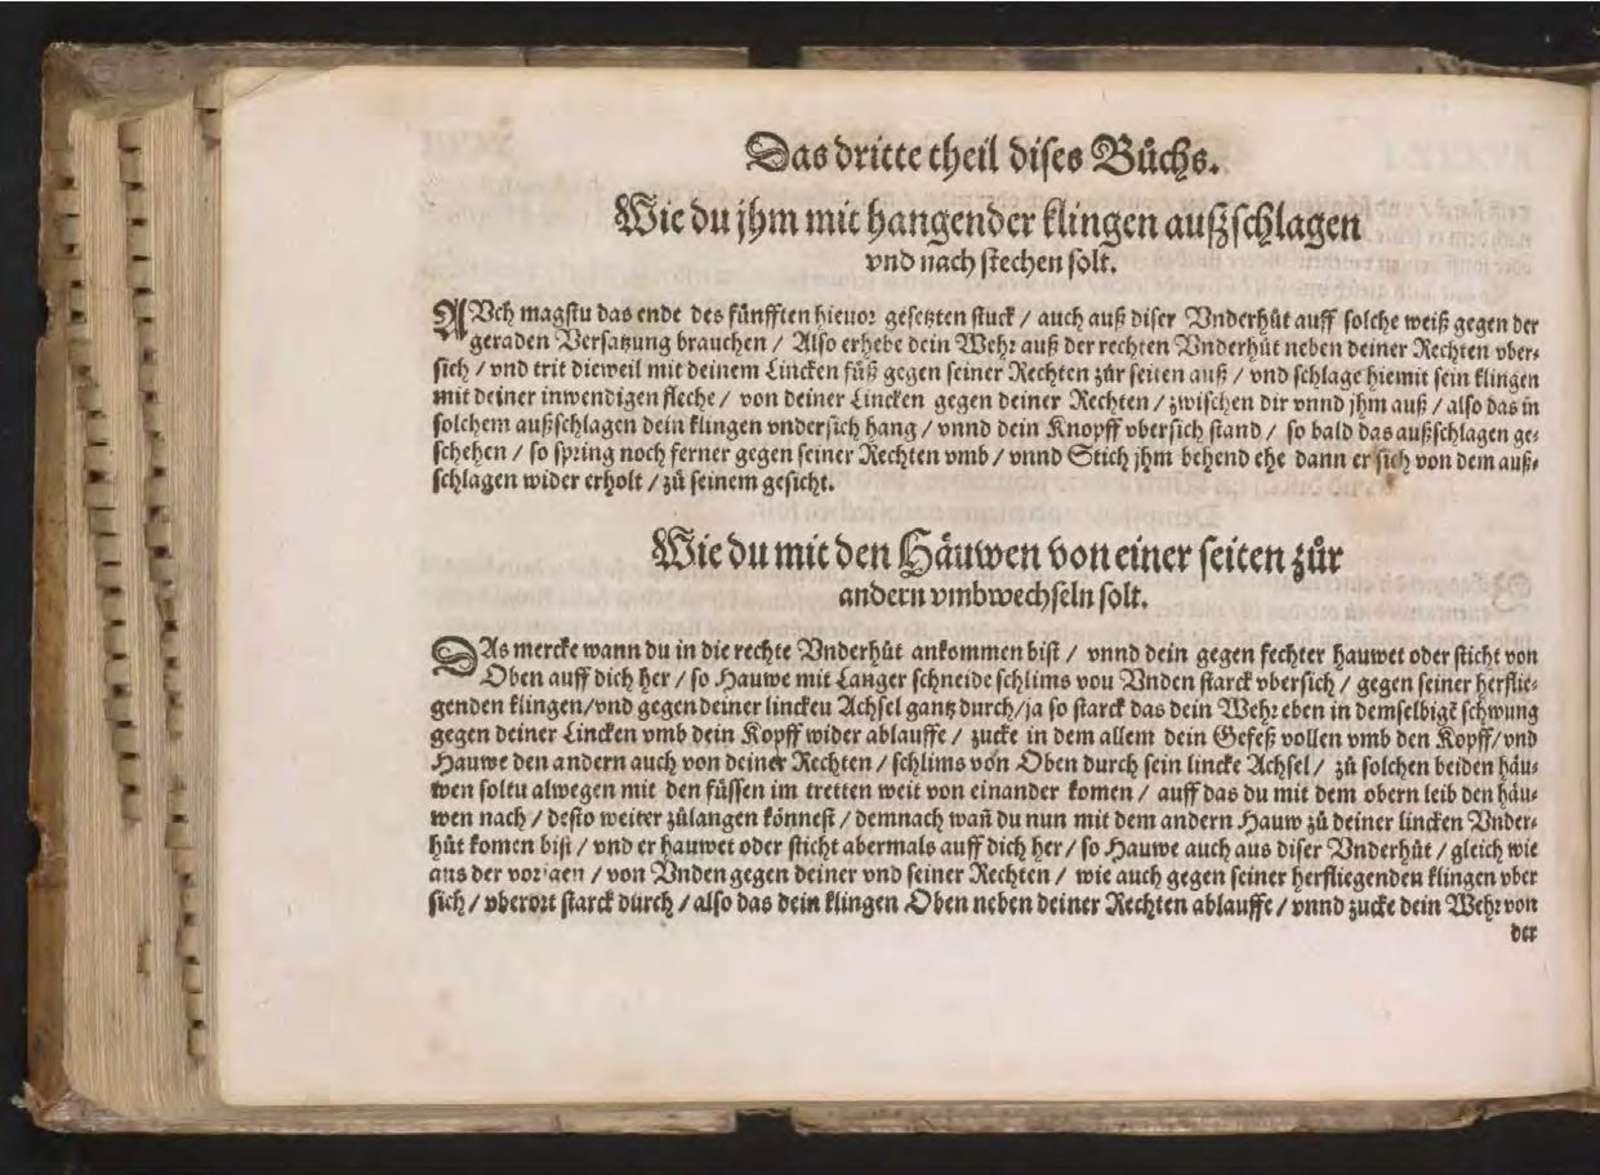 Das dritte theil diſes Bůchs.
Wie du jhm mit hangender klingen außſchlagen
vnd nach ſtechen ſolt.
AVch magſtu das ende des fünfften hieuor geſetzten ſtuck / auch auß diſer Vnderhůt auff ſolche weiß gegen der
geraden Verſatzung brauchen / Alſo erhebe dein Wehr auß der rechten Vnderhůt neben deiner Rechten vber⸗
ſich / vnd trit dieweil mit deinem Lincken fůß gegen ſeiner Rechten zůr ſeiten auß / vnd ſchlage hiemit ſein klingen
mit deiner inwendigen fleche / von deiner Lincken gegen deiner Rechten / zwiſchen dir vnnd jhm auß / alſo das in
ſolchem außſchlagen dein klingen vnderſich hang / vnnd dein Knopff vberſich ſtand / ſo bald das außſchlagen ge⸗
ſchehen / ſo ſpring noch ferner gegen ſeiner Rechten vmb / vnnd Stich jhm behend ehe dann er ſich von dem auß⸗
ſchlagen wider erholt / zů ſeinem geſicht.
Wie du mit den Häuwen von einer ſeiten zůr
andern vmbwechſeln ſolt.
DAs mercke wann du in die rechte Vnderhůt ankommen biſt / vnnd dein gegen fechter hauwet oder ſticht von
Oben auff dich her / ſo Hauwe mit Langer ſchneide ſchlims vou Vnden ſtarck vberſich / gegen ſeiner herflie⸗
genden klingen/vnd gegen deiner linckeu Achſel gantz durch/ja ſo ſtarck das dein Wehr eben in demſelbigē ſchwung
gegen deiner Lincken vmb dein Kopff wider ablauffe / zucke in dem allem dein Gefeß vollen vmb den Kopff/vnd
Hauwe den andern auch von deiner Rechten / ſchlims von Oben durch ſein lincke Achſel / zů ſolchen beiden häu⸗
wen ſoltu alwegen mit den füſſen im tretten weit von einander komen / auff das du mit dem obern leib den häu⸗
wen nach / deſto weiter zůlangen könneſt / demnach wañ du nun mit dem andern Hauw zů deiner lincken Vnder⸗
hůt komen biſt / vnd er hauwet oder ſticht abermals auff dich her / ſo Hauwe auch aus diſer Vnderhůt / gleich wie
aus der vorigen / von Vnden gegen deiner vnd ſeiner Rechten / wie auch gegen ſeiner herfliegenden klingen vber
ſich / vberort ſtarck durch / alſo das dein klingen Oben neben deiner Rechten ablauffe / vnnd zucke dein Wehr von
der